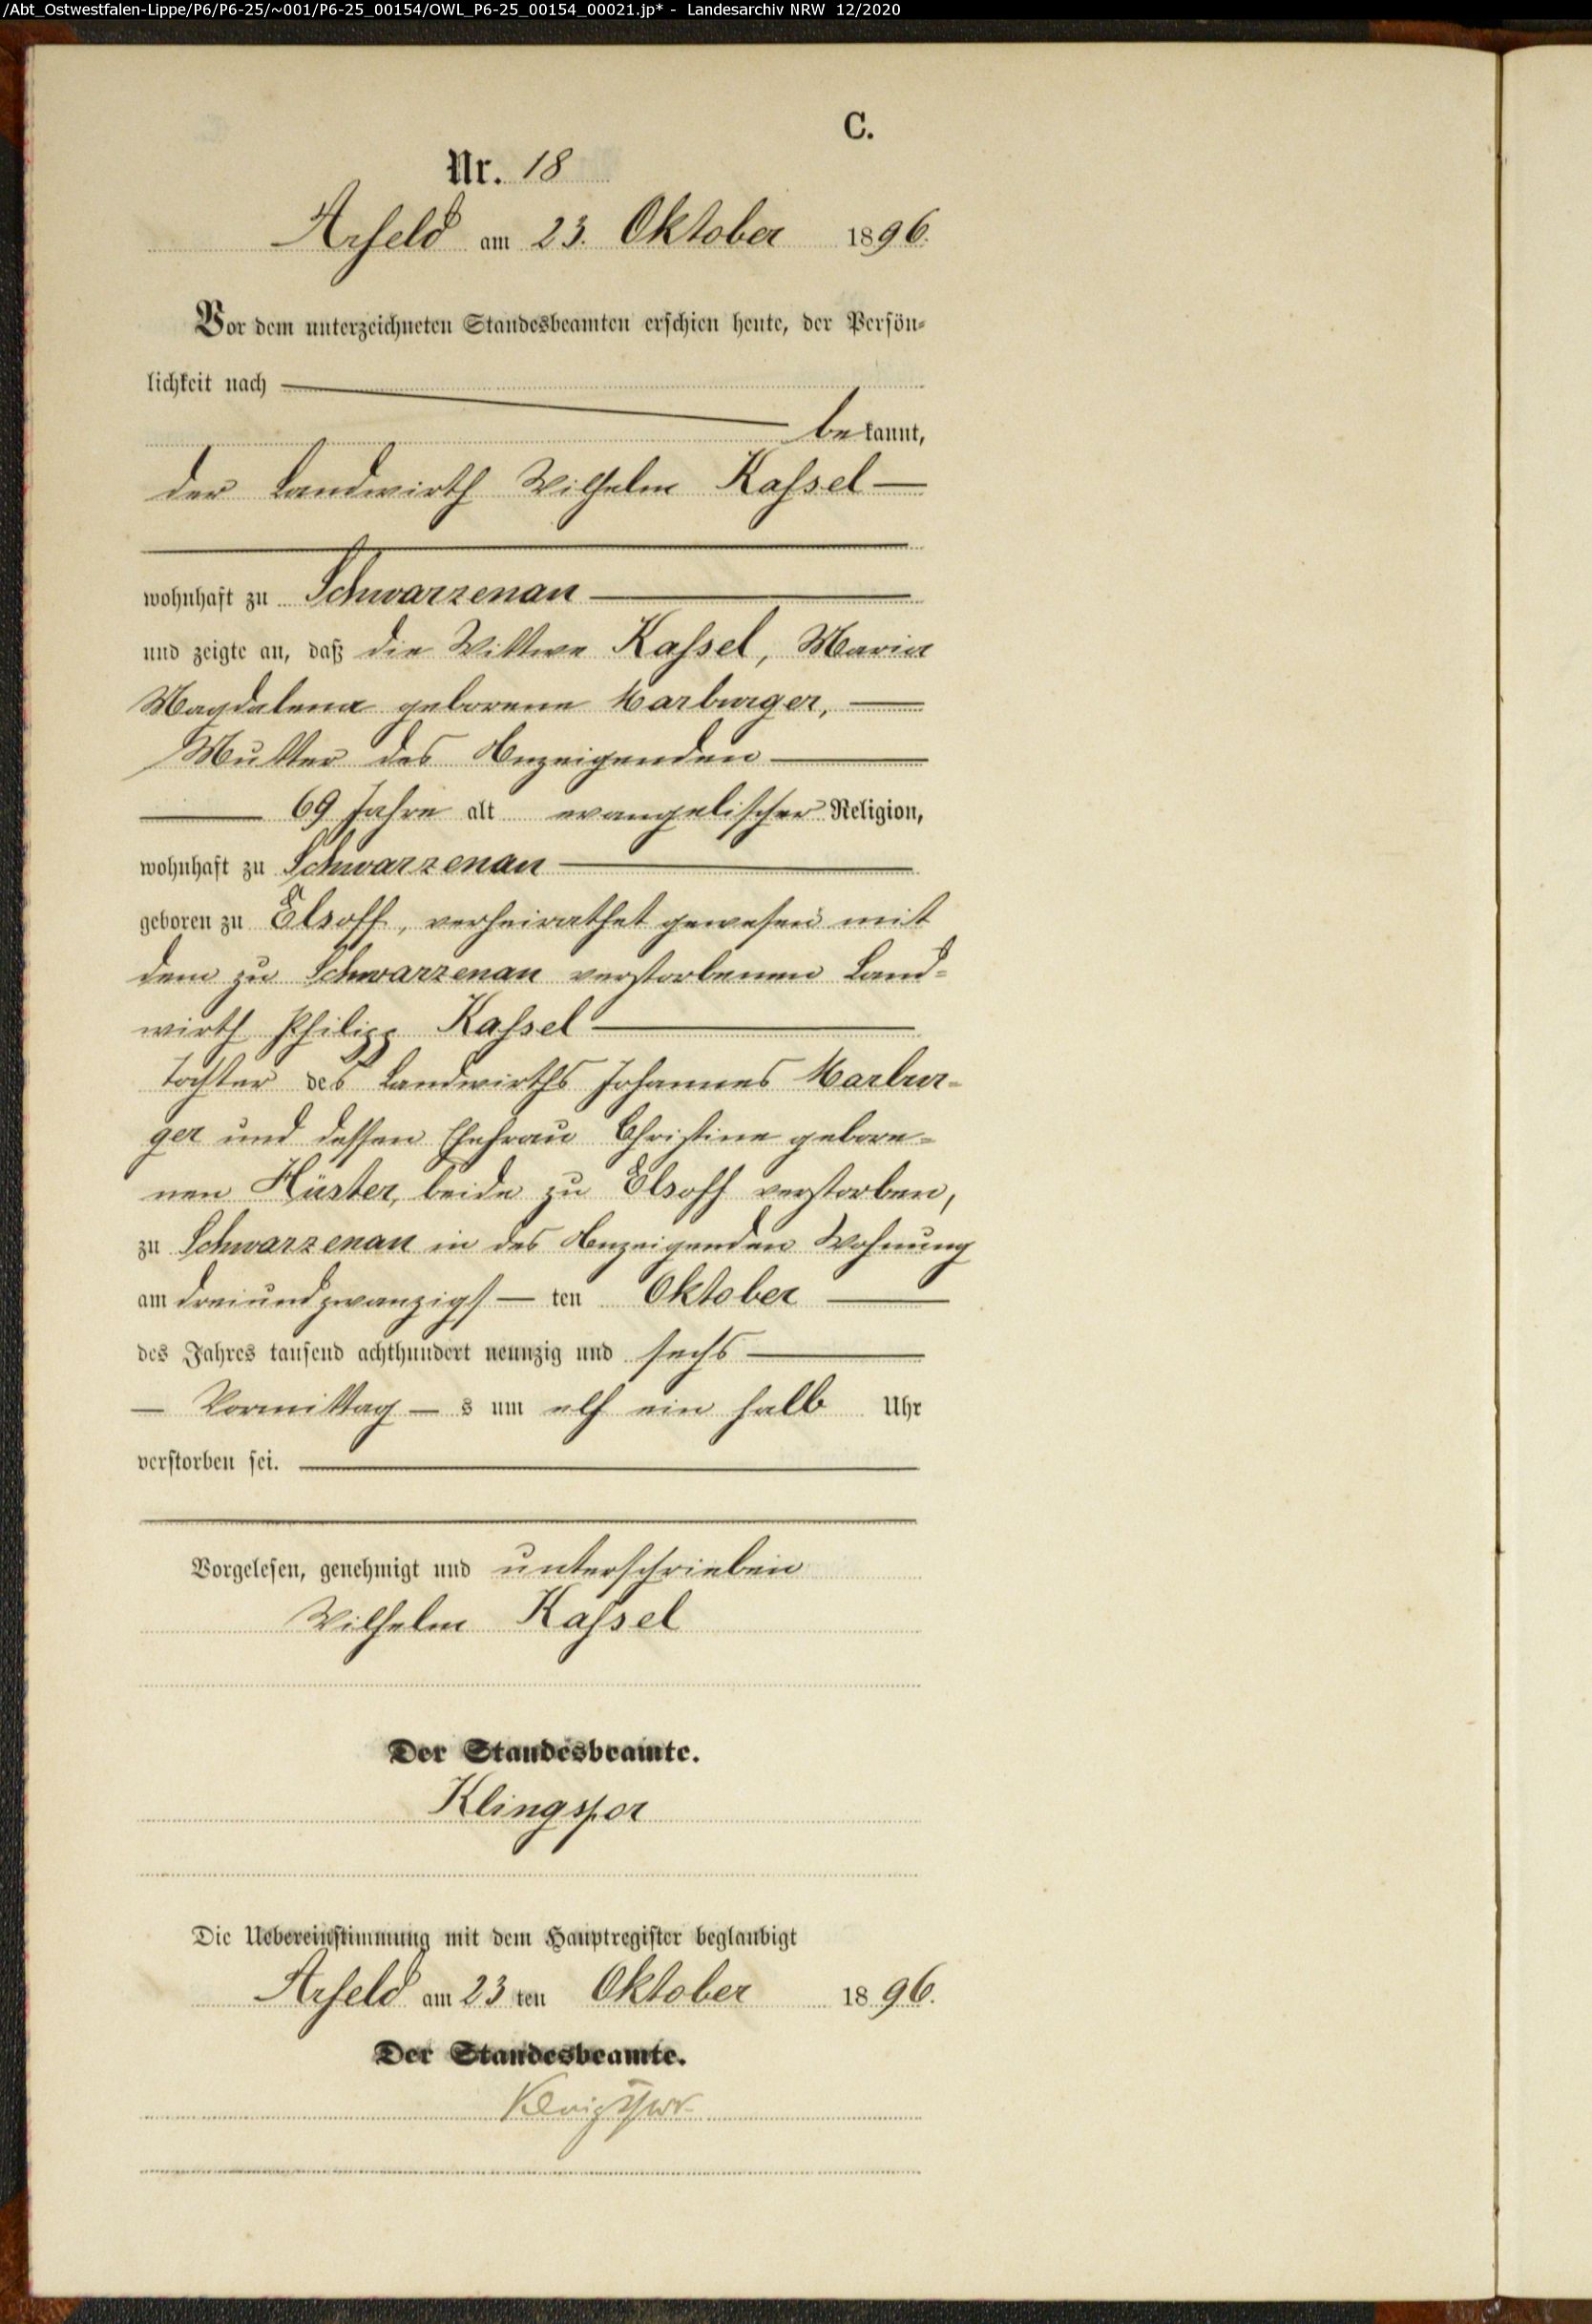 /Abt_Ostwestfalen-Lippe/P6/P6-25/~001/P6-25_00154/OWL_P6-25_00154_00021.jp* - Landesarchiv NRW 12/2020
C.
Nr. 18
Arfeld am 23. Oktober 1896.
Vor dem unterzeichneten Standesbeamten erschien heute, der Persön-
lichkeit nach
bekannt,
der Landwirth Wilhelm Kassel
wohnhaft zu Schwarzenau
und zeigte an, daß die Wittwe Kassel, Maria
Magdalena geborene Marburger,
Mutter des Anzeigenden
69 Jahre alt evangelischer Religion,
wohnhaft zu Schwarzenau
geboren zu Elsoff, verheirathet gewesen mit
dem zu Schwarzenau verstorbenen Land-
wirth Philipp Kassel
Tochter des Landwirths Johannes Marbur-
ger und dessen Ehefrau Christine gebore-
nen Hüster, beide zu Elsoff verstorben,
zu Schwarzenau in des Anzeigenden Wohnung
am dreiundzwanzigs — ten Oktober
des Jahres tausend achthundert neunzig und sechs
— Vormittag — s um elf ein halb Uhr
verstorben sei.
Vorgelesen, genehmigt und unterschrieben
Wilhelm Kassel
Der Standesbeamte.
Klingspor
Die Uebereinstimmung mit dem Hauptregister beglaubigt
Arfeld am 23 ten Oktober 1896.
Der Standesbeamte.
Klingspor